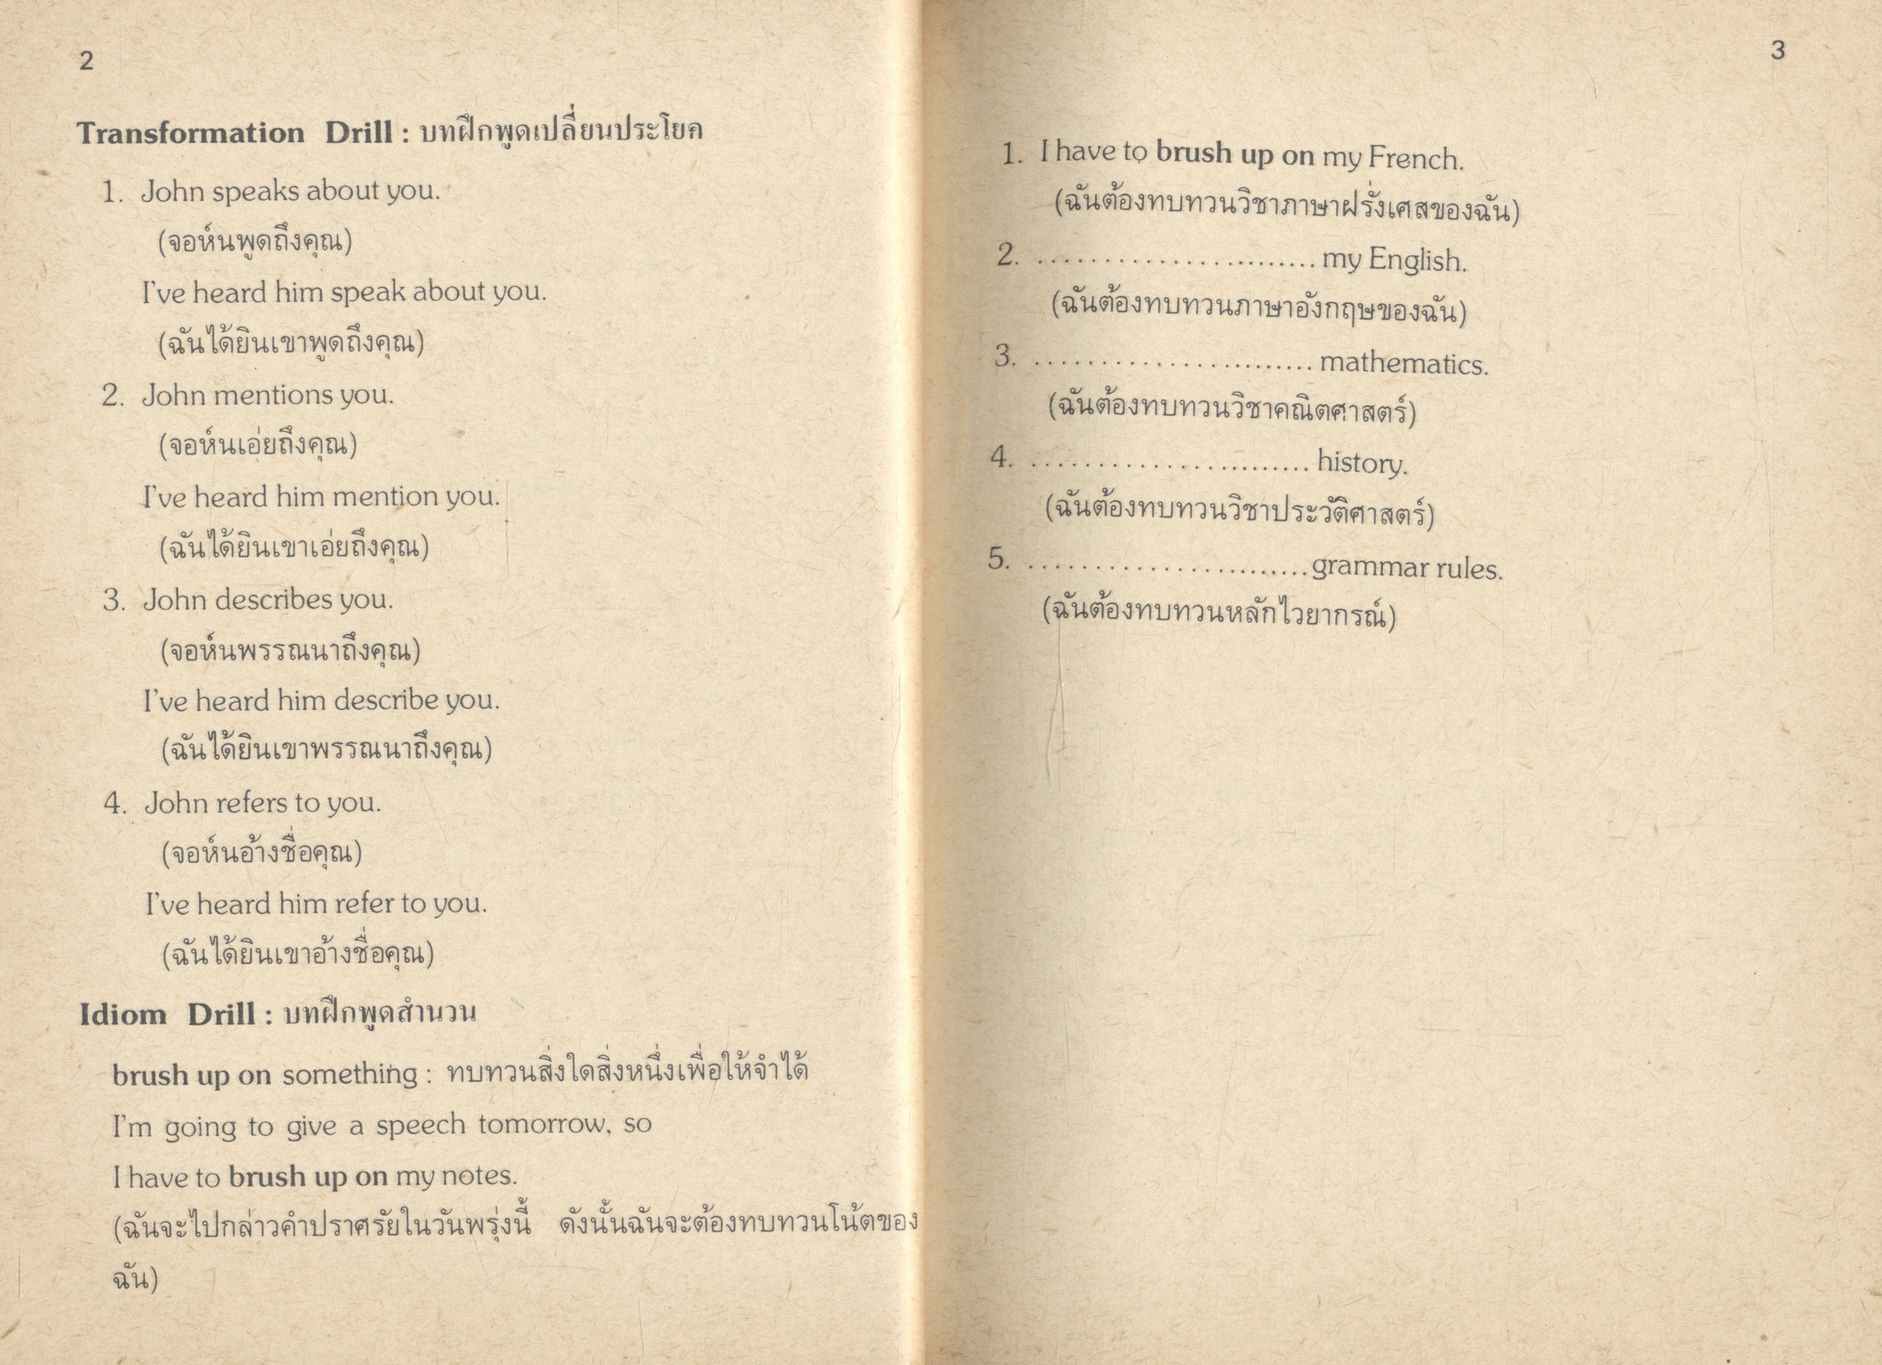 2
Transformation Drill : บทฝึกพูดเปลี่ยนประโยค
1. John speaks about you.
(จอห์นพูดถึงคุณ)
I've heard him speak about you.
(ฉันได้ยินเขาพูดถึงคุณ)
2. John mentions you.
(จอห์นเอ่ยถึงคุณ)
I've heard him mention you.
(ฉันได้ยินเขาเอ่ยถึงคุณ)
3. John describes you.
(จอห์นพรรณนาถึงคุณ)
I've heard him describe you.
(ฉันได้ยินเขาพรรณนาถึงคุณ)
4. John refers to you.
(จอห์นอ้างชื่อคุณ)
I've heard him refer to you.
(ฉันได้ยินเขาอ้างชื่อคุณ)
Idiom Drill : บทฝึกพูดสำนวน
brush up on something : ทบทวนสิ่งใดสิ่งหนึ่งเพื่อให้จำได้
I'm going to give a speech tomorrow, so
I have to brush up on my notes.
(ฉันจะไปกล่าวคำปราศรัยในวันพรุ่งนี้ ดังนั้นฉันจะต้องทบทวนโน้ตของ
ฉัน)
3
1. I have to brush up on my French.
(ฉันต้องทบทวนวิชาภาษาฝรั่งเศสของฉัน)
2. ........................ my English.
(ฉันต้องทบทวนภาษาอังกฤษของฉัน)
3. ........................ mathematics.
(ฉันต้องทบทวนวิชาคณิตศาสตร์)
4. ........................ history.
(ฉันต้องทบทวนวิชาประวัติศาสตร์)
5. ........................ grammar rules.
(ฉันต้องทบทวนหลักไวยากรณ์)